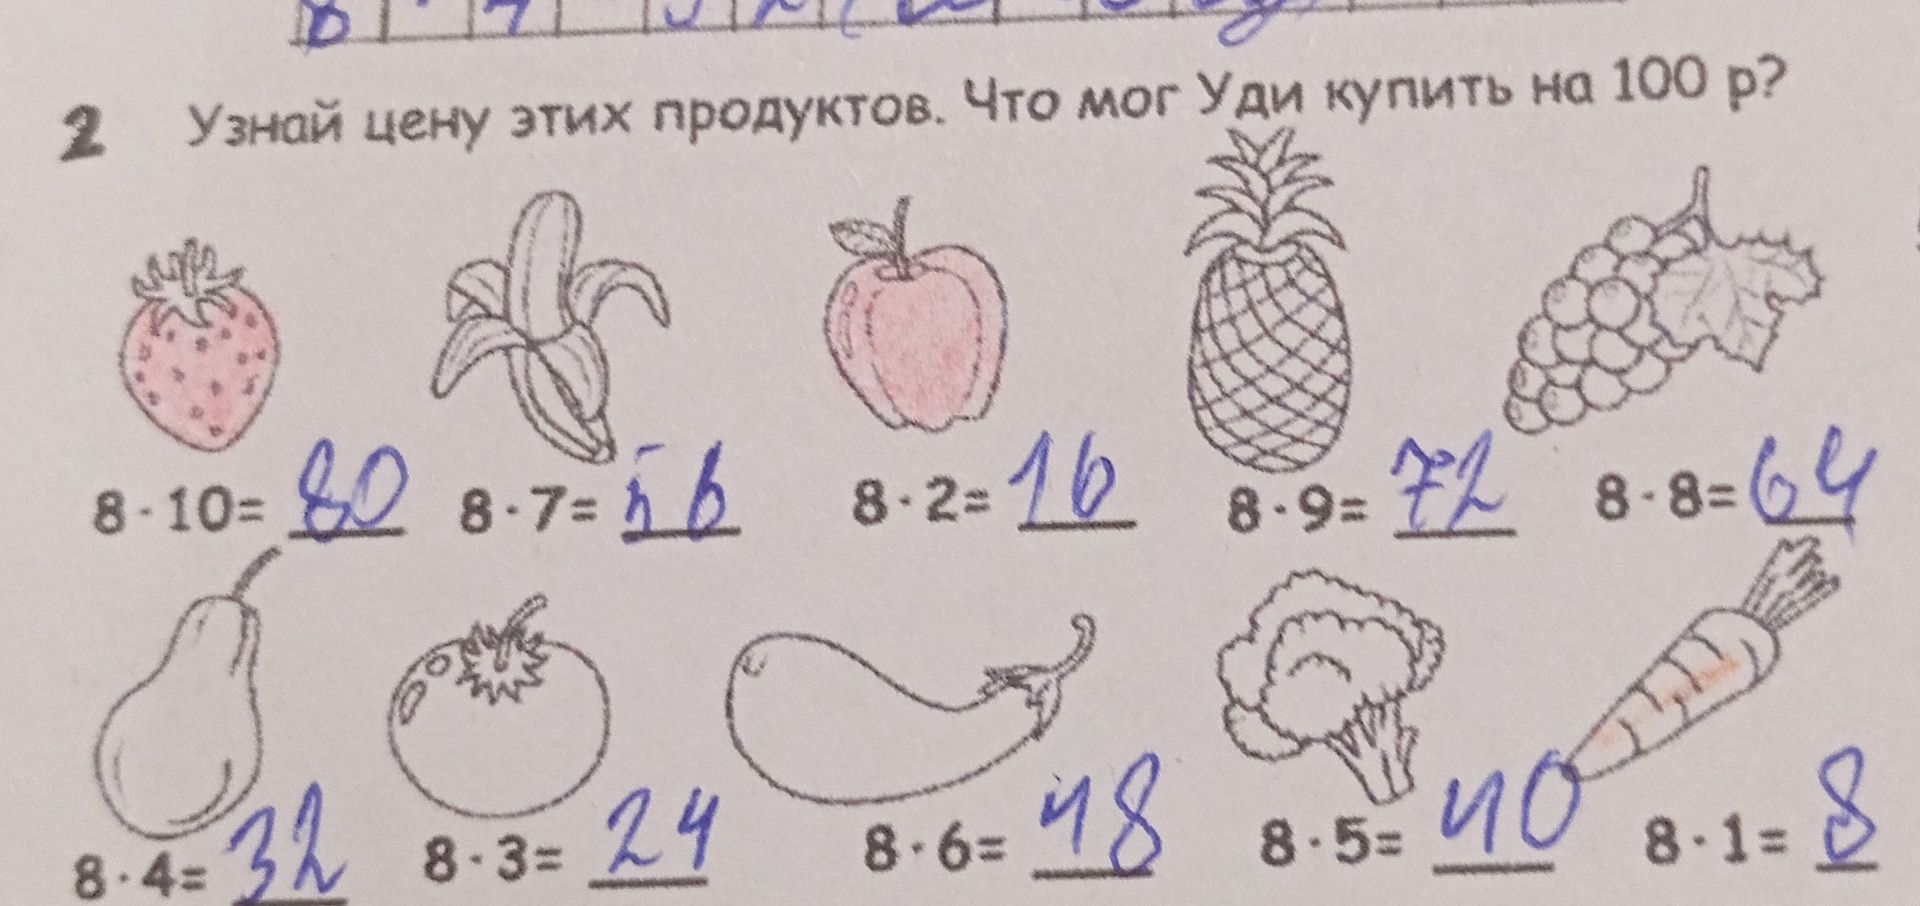 2 Узнай цену этих продуктов. Что мог Уди купить на 100 р?
8 · 10= 80 8 · 7= 56 8 · 2= 16 8 · 9= 72 8 · 8= 64
8 · 4= 32 8 · 3= 24 8 · 6= 48 8 · 5= 40 8 · 1= 8